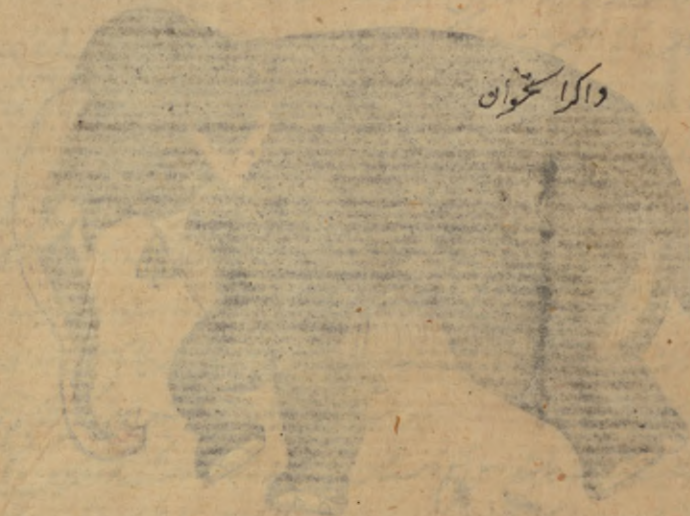 واکر استخوان